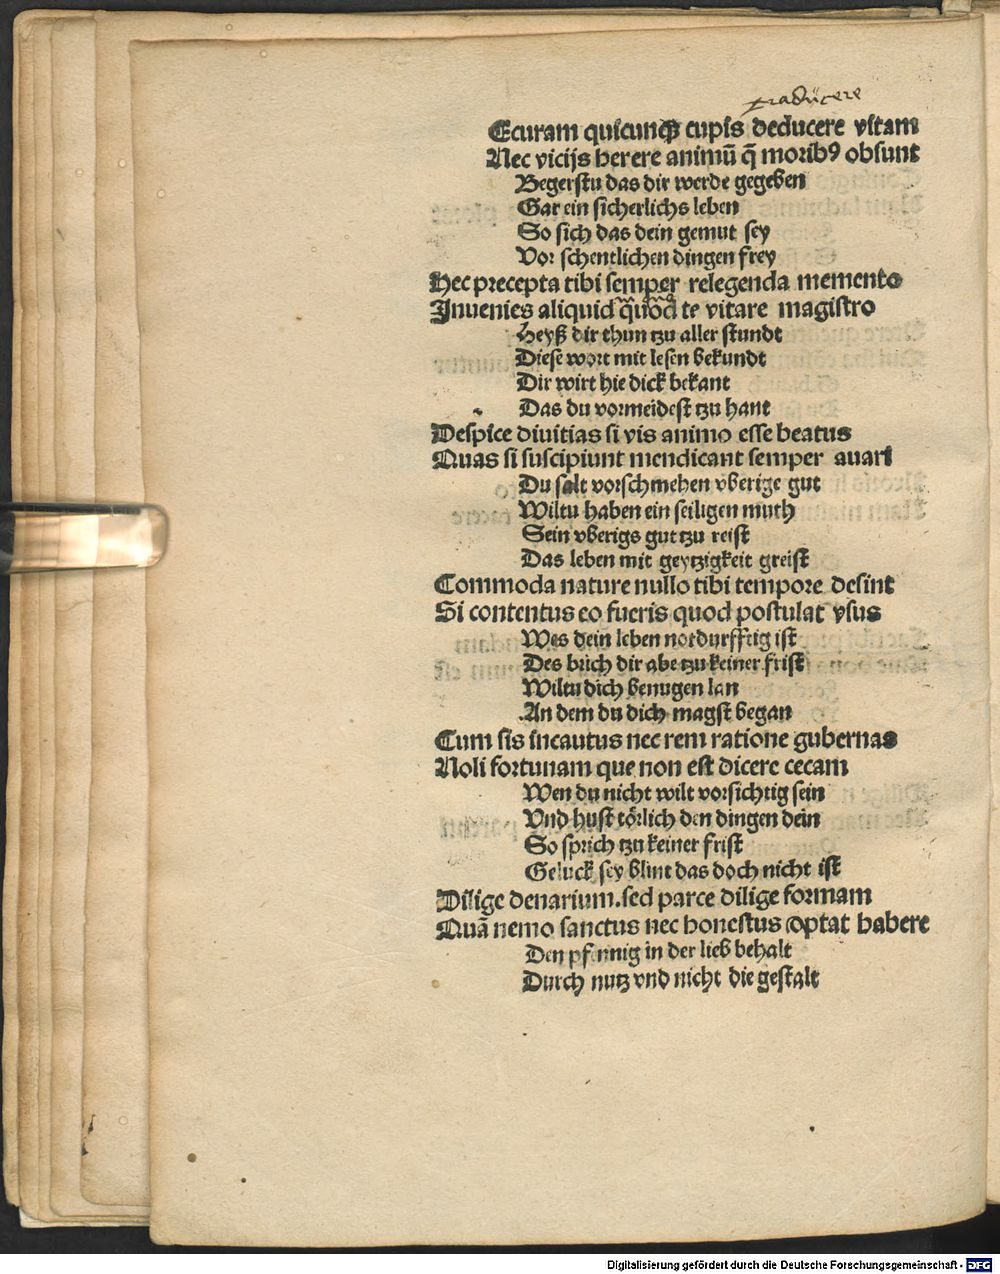 traducere
Ecuram quicunqꝫ cupis deducere vitam
Nec vicijs herere animū q̄ moribꝰ obsunt
Begerstu das dir werde gegeben
Gar ein sicherlichs leben
So sich das dein gemut sey
Vor schentlichen dingen frey
Hec precepta tibi semper relegenda memento
Inuenies aliquid quod te vitare magistro
Heyß dir thun tzu aller stundt
Diese wort mit lesen bekundt
Dir wirt hie dick bekant
Das du vormeidest tzu hant
Despice diuitias si vis animo esse beatus
Quas si suscipiunt mendicant semper auari
Du salt vorschmehen vberige gut
Wiltu haben ein seiligen muth
Sein vberigs gut tzu reist
Das leben mit geytzigkeit greist
Commoda nature nullo tibi tempore desint
Si contentus eo fueris quod postulat vsus
Wes dein leben notdurfftig ist
Des brich dir abe tzu keiner frist
Wiltu dich benugen lan
An dem du dich magst began
Cum sis incautus nec rem ratione gubernas
Noli fortunam que non est dicere cecam
Wen du nicht wilt vorsichtig sein
Vnd hust törlich den dingen dein
So sprich tzu keiner frist
Geluck sey blint das doch nicht ist
Dilige denarium.sed parce dilige formam
Quā nemo sanctus nec honestus optat habere
Den pfennig in der lieb behalt
Durch nutz vnd nicht die gestalt
Digitalisierung gefördert durch die Deutsche Forschungsgemeinschaft - DFG